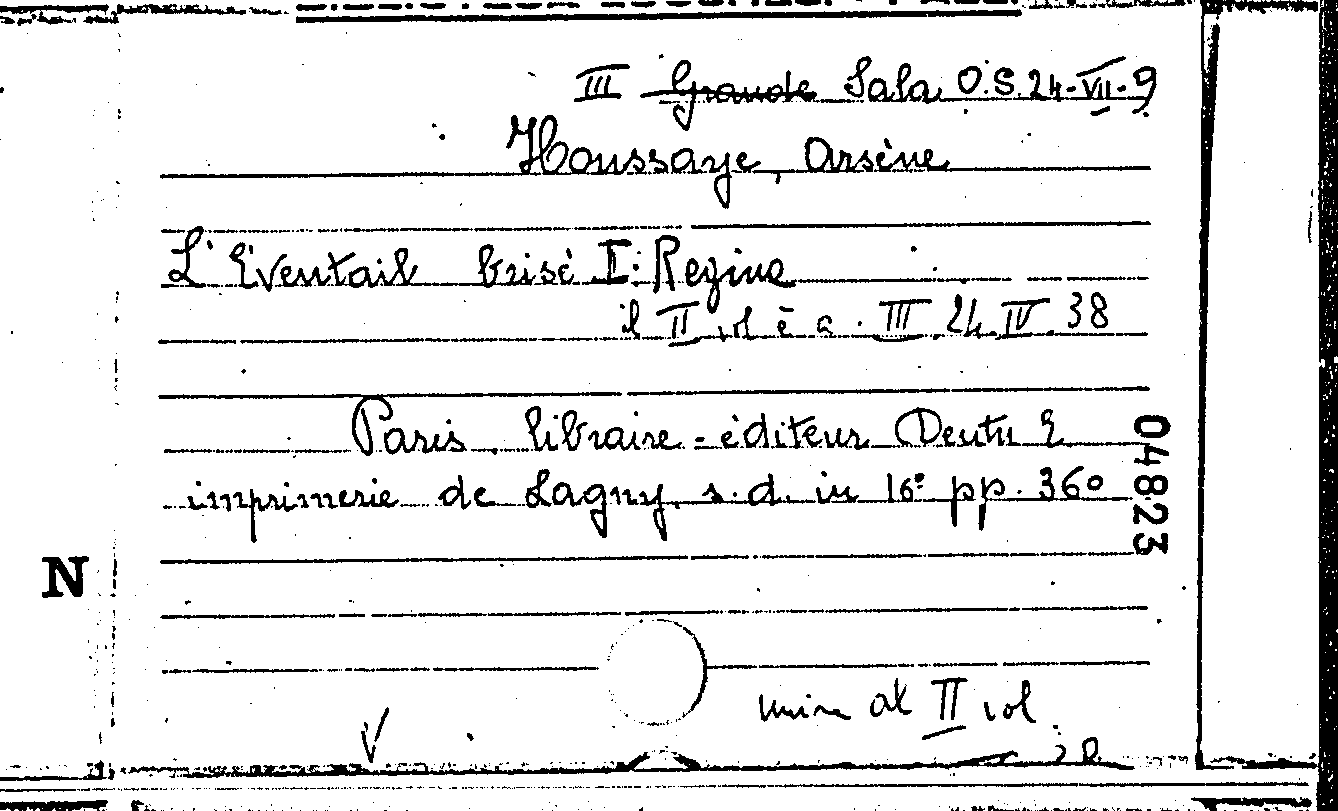 III Grande Sala O.S. 24-VII-9
Houssaye, Arsène
L'Éventail brisé I: Regina
il II vol è a. III 24.IV.38
Paris. libraire-éditeur Dentu E
imprimerie de Lagny, s.d. in 16º pp. 360
04823
N
unire al II vol